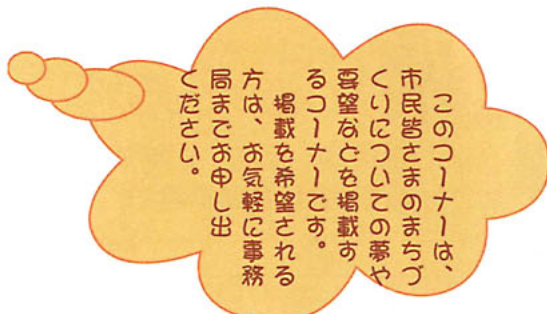 このコーナーは、
市民皆さまのまちづ
くりについての夢や
要望などを掲載す
るコーナーです。
掲載を希望される
方は、お気軽に事務
局までお申し出
ください。